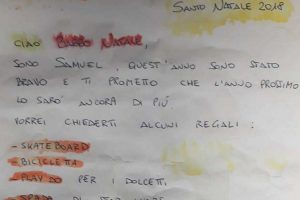 SANTO NATALE 2018
CIAO BABBO NATALE,
SONO SAMUEL, QUEST'ANNO SONO STATO
BRAVO E TI PROMETTO CHE L'ANNO PROSSIMO
LO SARO' ANCORA DI PIÙ.
VORREI CHIEDERTI ALCUNI REGALI:
- SKATEBOARD
- BICICLETTA
- PLAY DO PER I DOLCETTI
- SPADA DI STAR WARS